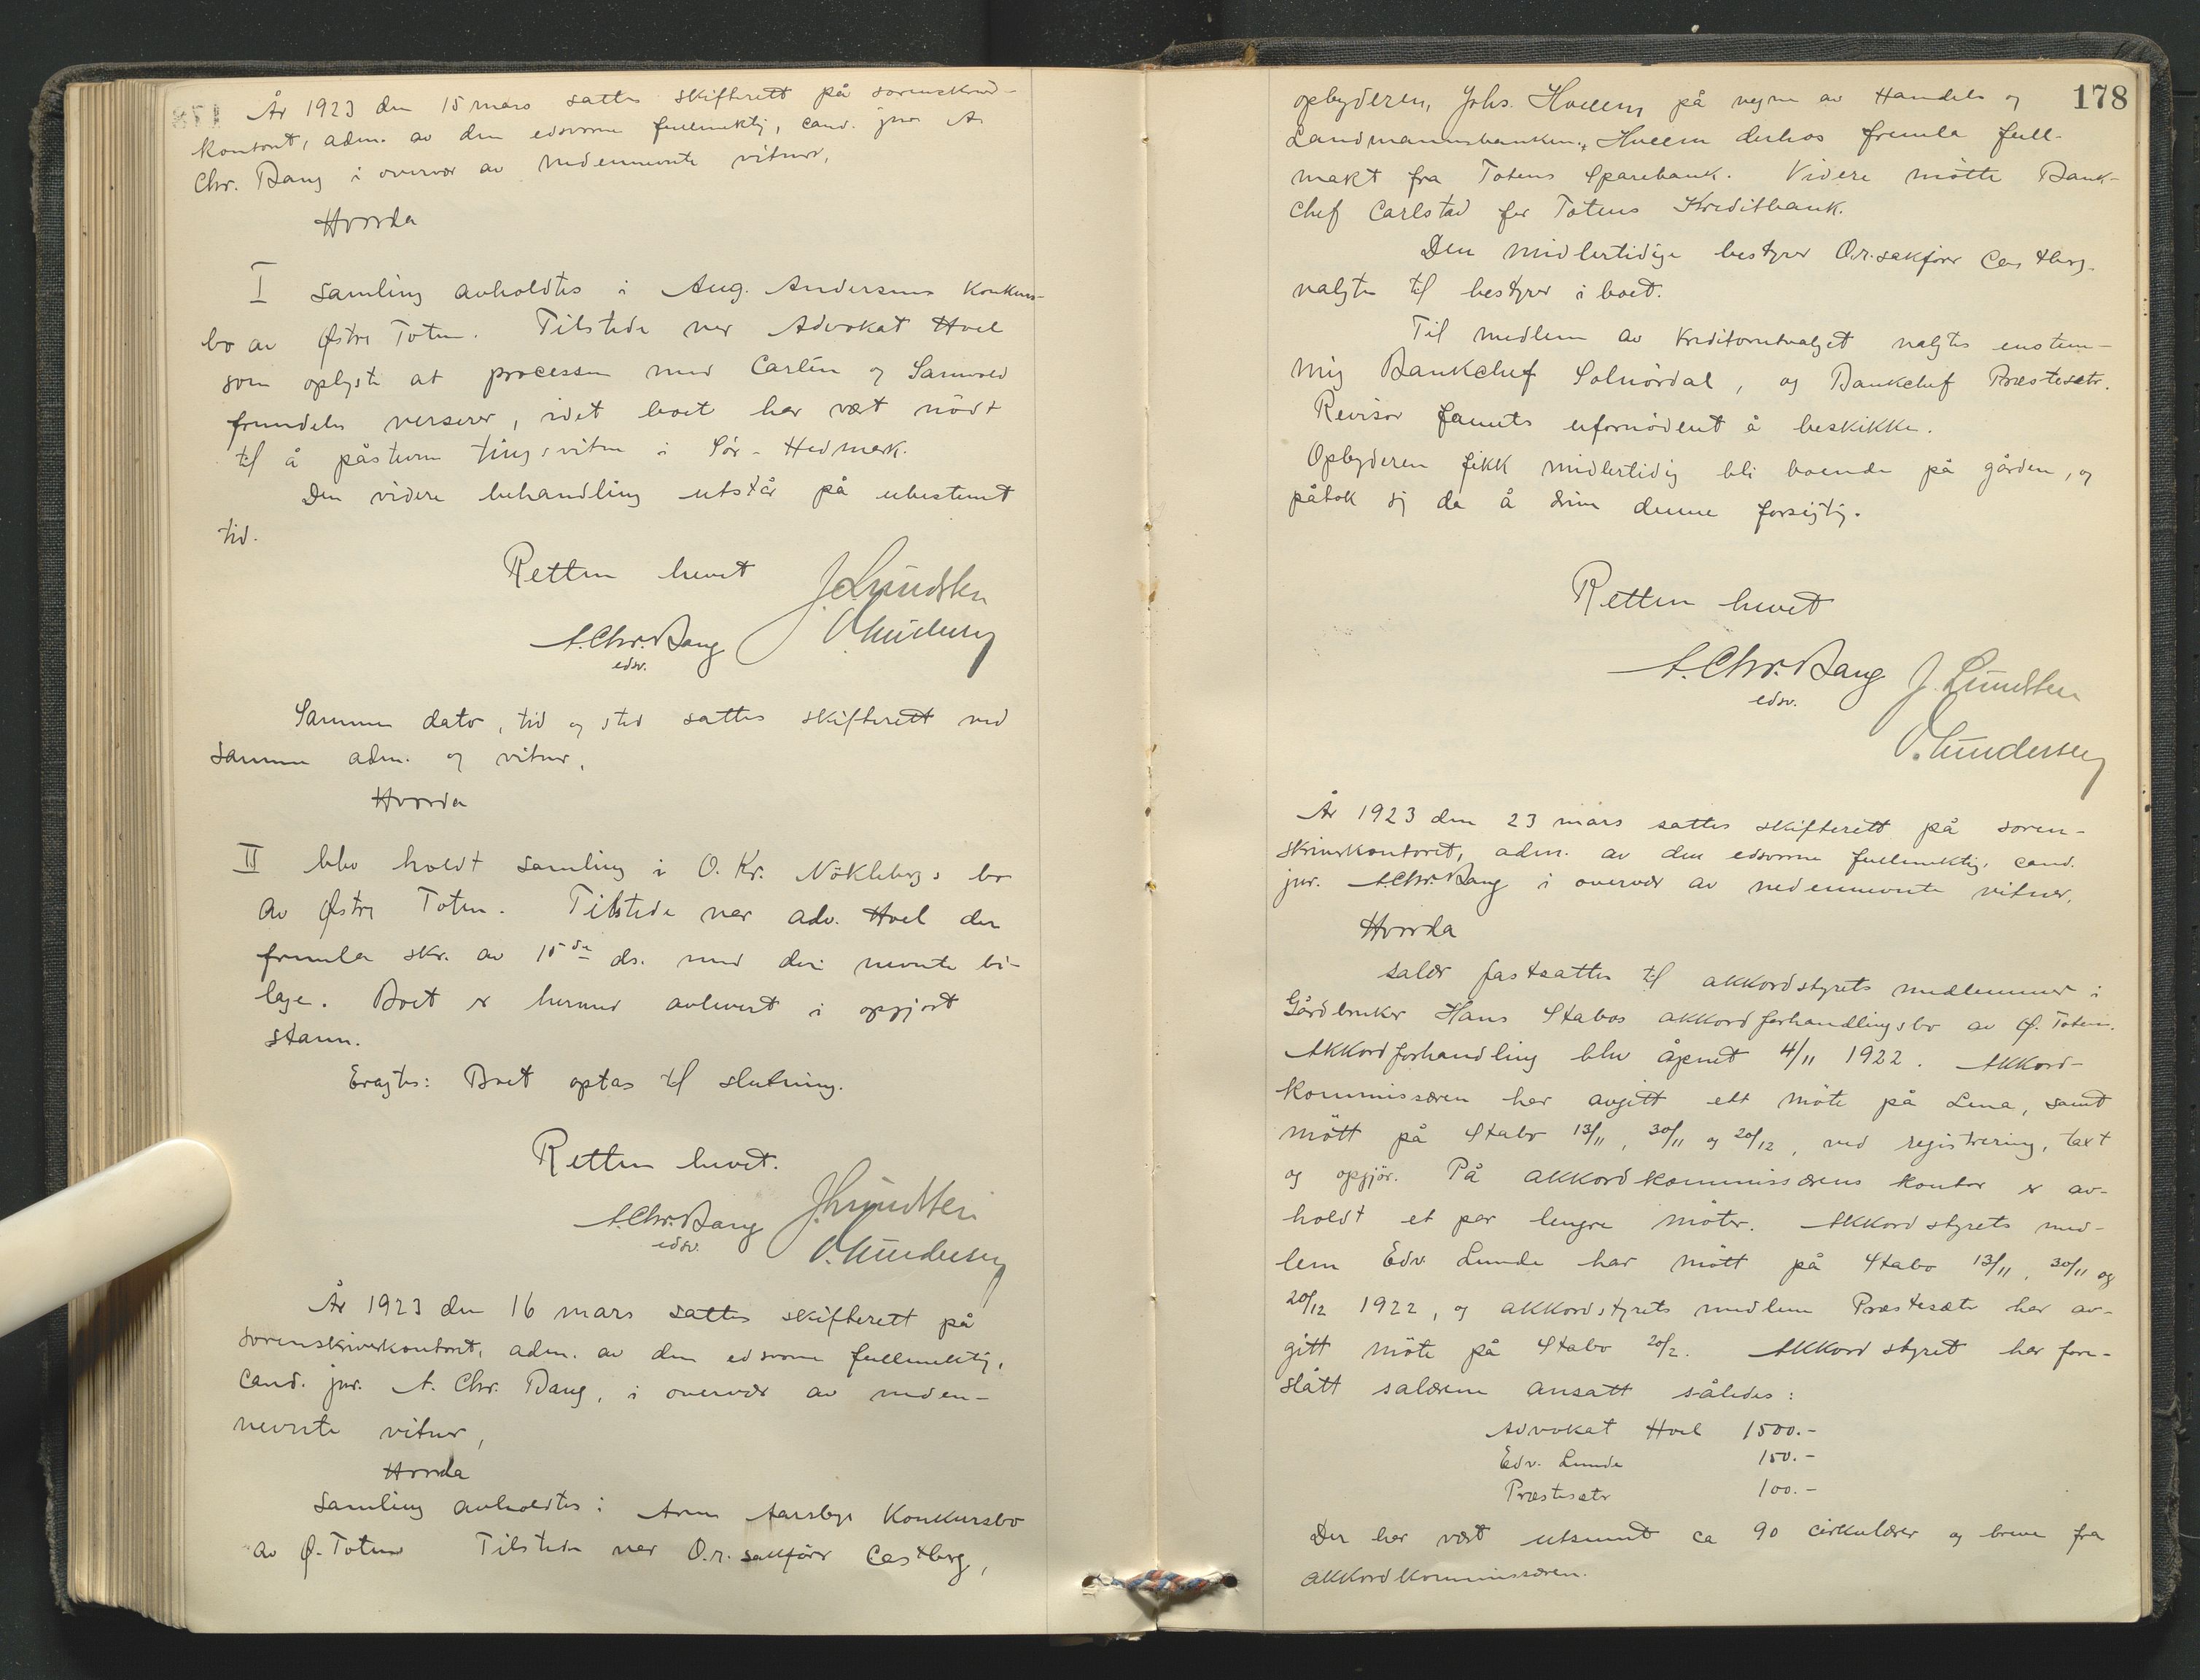 År 1923 den 15 mars sattes skifterett på sorenskriv-
kontoret, adm. av den edsvorne fullmektig, cand. jur. A.
Chr. Bang i overvær av nedennevnte vitner,
Hvorda
I samling avholdtes i Aug. Andersens konkurs-
bo av Østre Toten. Tilstede var Advokat Hoel
som oplyste at processen med Carlén og Samvold
fremdeles verserer, idet boet har vært nödt
til å påstevne tingsvitne i Sør-Hedmark.
Den videre behandling utstår på ubestemt
tid.
Retten hevet J. Lundsten
A. Chr. Bang O. Gundersen
edsv.
Samme dato, tid og sted sattes skifterett ved
samme adm. og vitner,
Hvorda
II blev holdt samling i O. Kr. Nöklebergs bo
av Østre Toten. Tilstede var adv. Hoel der
fremla skr. av 15de ds. med deri nevnte bi-
lage. Boet er hermed avlevert i opgjort
stann.
Eragtes: Boet optas til slutning.
Retten hevet.
A. Chr. Bang J. Lundsten
edsv. O. Gundersen
År 1923 den 16 mars sattes skifterett på
sorenskriverkontoret, adm. av den edsvorne fullmektig,
cand. jur. A. Chr. Bang, i overvær av neden-
nevnte vitner,
Hvorda
Samling avholdtes i Arne Aarsbys konkursbo
av Ø. Toten Tilstede var O.r.sakförer Castberg,
178
opbyderen, Johs. Hveem på vegne av Handels og
Landmannsbanken. Hveem derhos fremla full-
makt fra Totens Sparebank. Videre mötte Bank-
chef Carlstad for Totens Kreditbank.
Den midlertidige bestyrer O.r.sakförer Castberg
valgtes til bestyrer i boet.
Til medlem av kreditorutvalget valgtes enstem-
mig Bankchef Solnördal, og Bankchef Præstesæter.
Revisor fannts ufornödent å beskikke.
Opbyderen fikk midlertidig bli boende på gården, og
påtok sig da å drive denne forsigtig.
Retten hevet
A. Chr. Bang J. Lundsten
edsv.
O. Gundersen
År 1923 den 23 mars sattes skifterett på soren-
skriverkontoret, adm. av den edsvorne fullmektig, cand.
jur. A. Chr. Bang i overvær av nedennevnte vitner,
Hvorda
salær fastsattes til akkordstyrets medlemmer i
Gårdbruker Hans Stabos akkordforhandlingsbo av Ø. Toten.
Akkordforhandling blev åpnet 4/11 1922. Akkord-
kommissæren har avgitt ett möte på Lena, samt
mött på Stabo 13/11, 30/11 og 20/12, ved registrering, taxt
og opgjör. På akkordkommissærens kontor er av-
holdt et par lengre möter. Akkordstyrets med-
lem Edv. Lunde har mött på Stabo 13/11, 30/11 og
20/12 1922, og akkordstyrets medlem Præstesæter har av-
gitt möte på Stabo 20/2. Akkordstyret har fore-
slått salærene ansatt således:
Advokat Hoel 1500.-
Edv. Lunde 150.-
Præstesæter 100.-
Der har vært utsendt ca 90 cirkulærer og breve fra
akkordkommissæren.